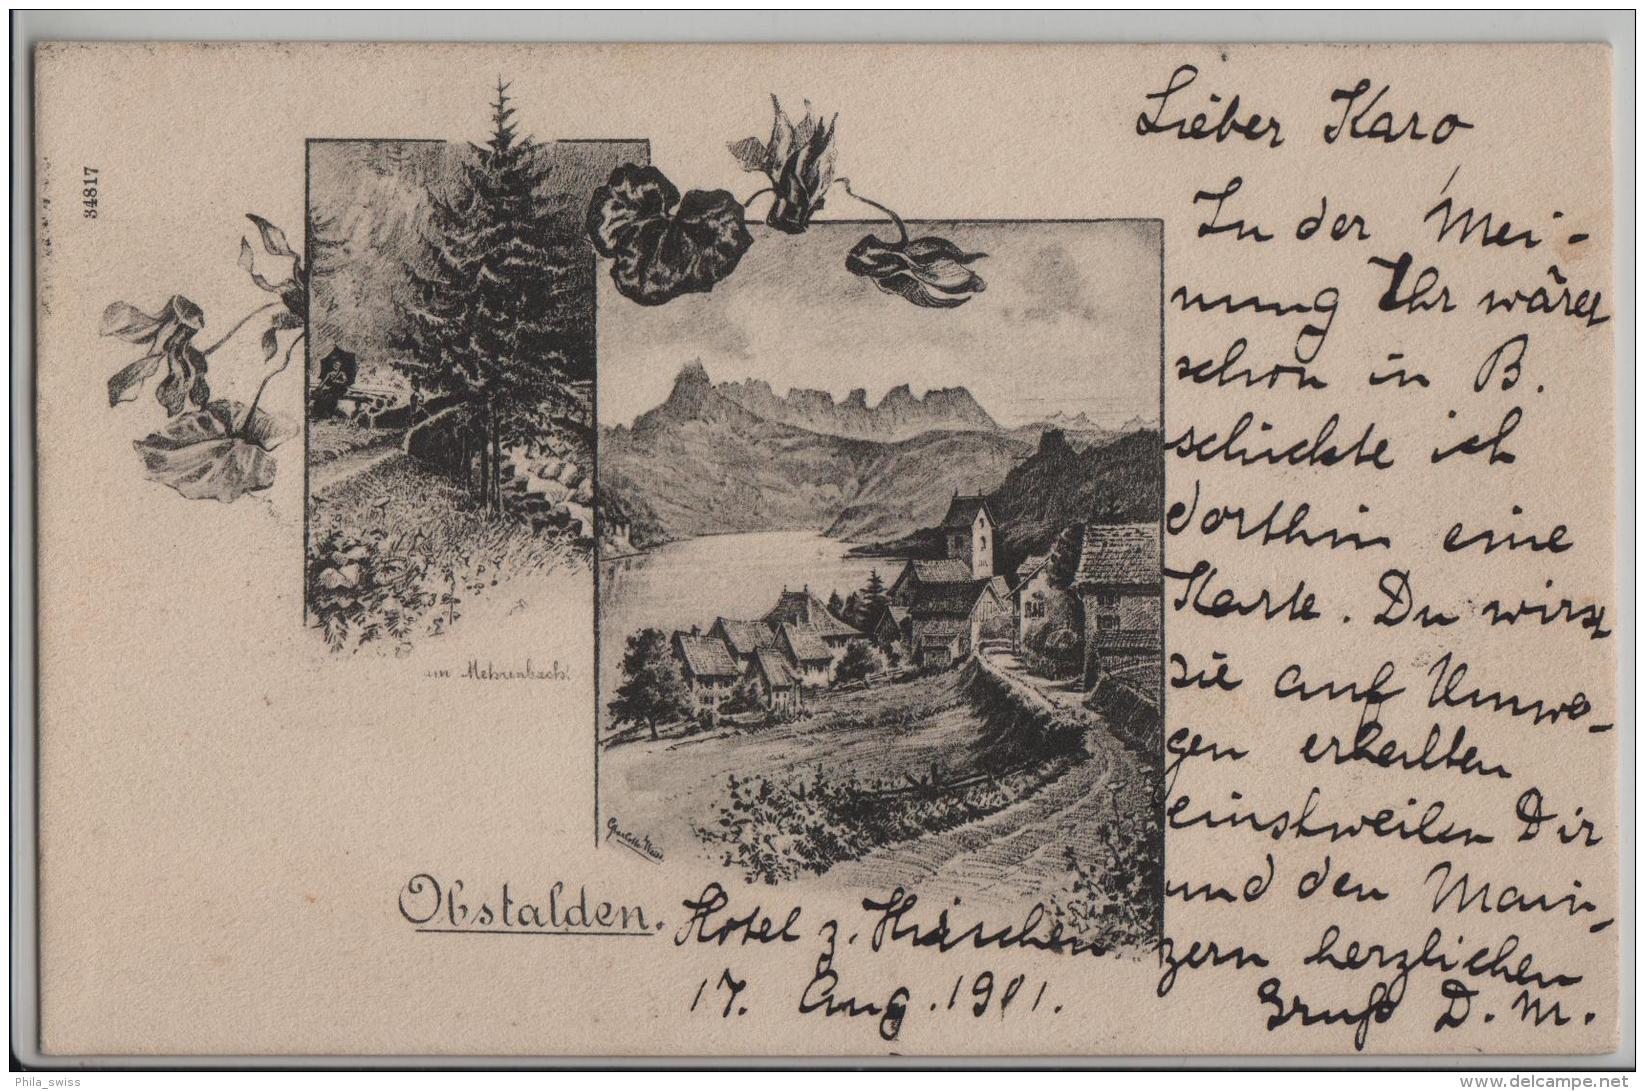 34817
Lieber Karo
In der Mei-
nung Ihr wäret
schon in B.
schickte ich
dorthin eine
Karte. Du wirst
sie auf Umwe-
gen erhalten
einstweilen Dir
und den Main-
zern herzlichen
Gruß D. M.
am Mehrenbach
Obstalden.
Hotel z. Hirschen
17. Aug. 1901.
Phila_swiss
www.delcampe.net